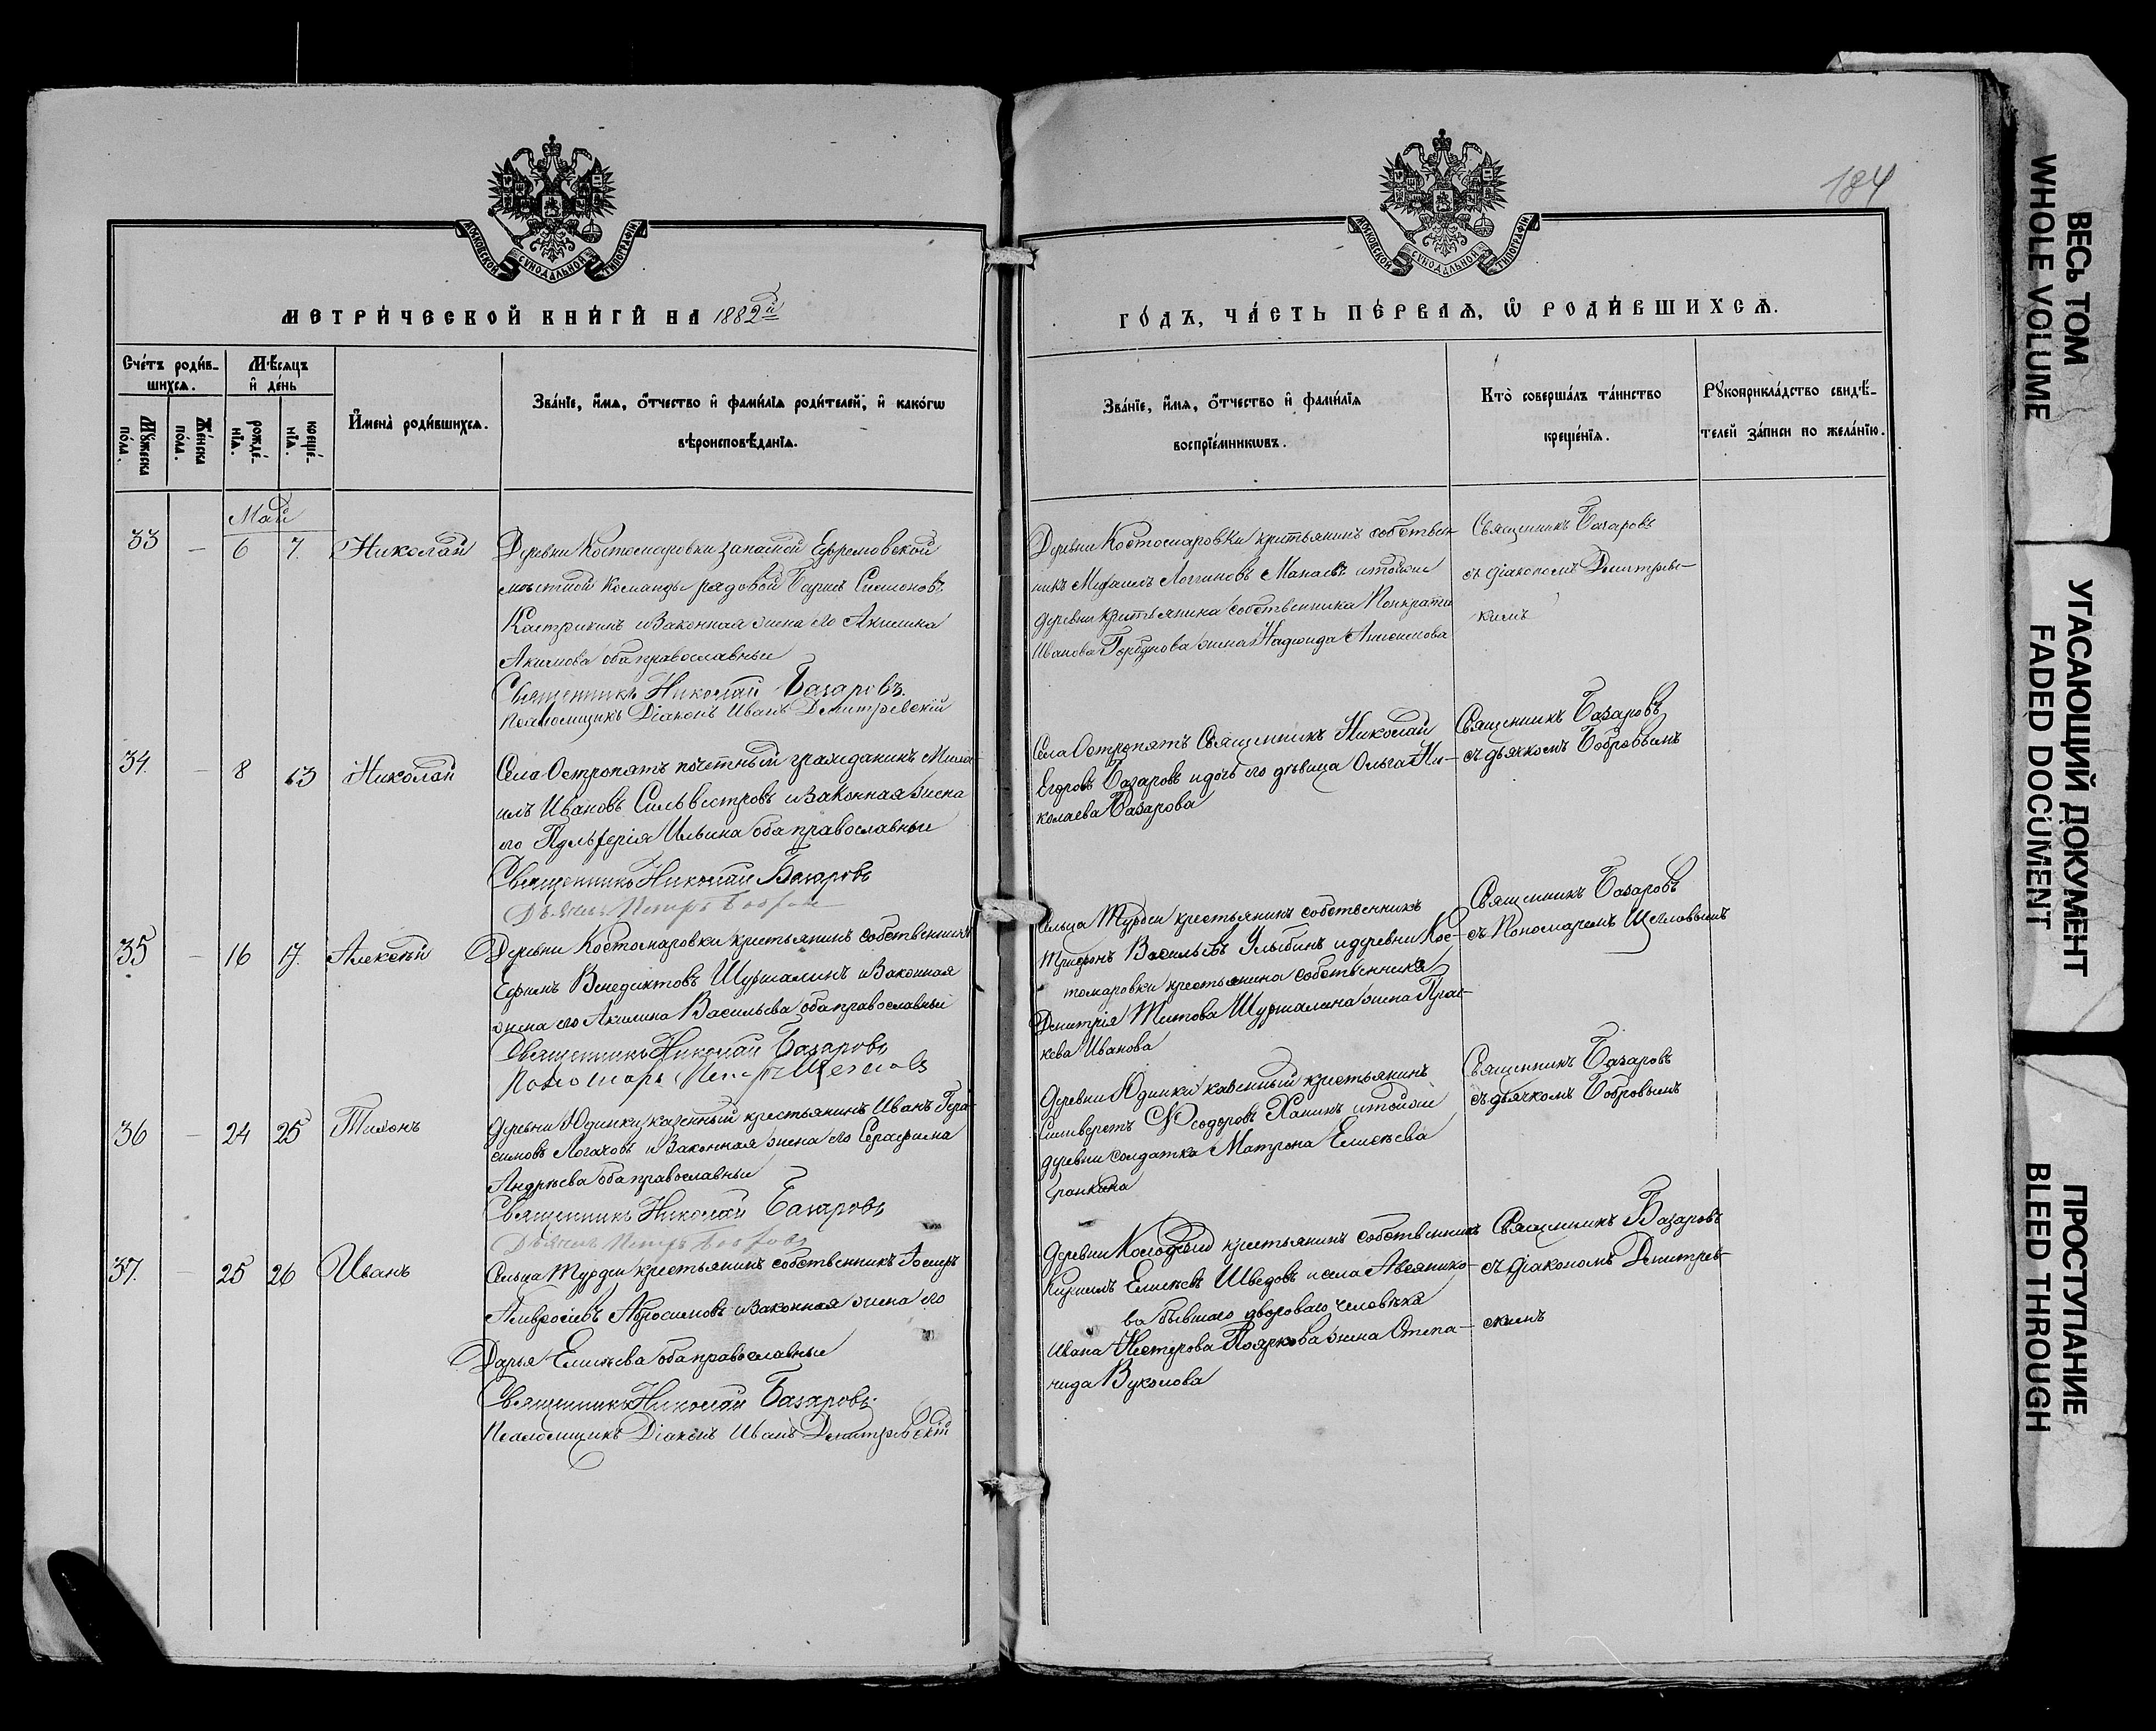 184
МОСКОВСКОЙ СѴНОДАЛЬНОЙ ТИПОГРАФІИ
МОСКОВСКОЙ СѴНОДАЛЬНОЙ ТИПОГРАФІИ
МЕТРИ́ЧЕСКОЙ КНИ́ГИ НА 1882й
ГО́ДЪ, ЧА́СТЬ ПЕ́РВАѦ, Ѡ РОДИ́ВШИХСѦ.
Сче́тъ роди́в-
шихсѧ.
Мꙋ́жеска по́ла.
Же́нска по́ла.
Мѣ́сяцъ
и де́нь
рожде́-нїѧ.
креще́-нїѧ.
Имена̀ роди́вшихсѧ.
Зва́нїе, и́мѧ, о́тчество и фами́лїѧ роди́телей, и како́гѡ
вѣроисповѣ́данїѧ.
Зва́нїе, и́мѧ, о́тчество и фами́лїѧ
воспрїе́мникѡвъ.
Кто̀ соверша́лъ та́инство
креще́нїѧ.
Рꙋкоприкла́дство свидѣ́-
телей за́писи по жела́нїю.
Май
33 — 6 7. Николай
Деревни Костомаровки запасной Ефремовской
мѣстной команды рядовой Симоновъ
и законная жена его Акилина
Акимова оба православные
Священникъ Николай Базаровъ.
Псаломщикъ Діаконъ Иванъ Дмитревскій
Деревни Костомаровки крестьянинъ собствен-
никъ Михаилъ Логгиновъ и тойже
деревни крестьянина собственника Понкратія
Иванова жена
Священникъ Базаровъ
съ діакономъ Дмитрев-
кимъ
34. — 8 13 Николай
Села Остропятъ почетный гражданинъ Миха-
илъ Ивановъ Сильвестровъ и законная жена
его Пульхерія Ильина оба православные
Священникъ Николай Базаровъ
Дьячекъ Петръ Бобровъ
Села Остропятъ Священникъ Николай
Егоровъ Базаровъ и дочь его дѣвица Ольга Ни-
колаева Базарова
Священникъ Базаровъ
съ дьячкомъ Бобровымъ
35 — 16 17. Алексѣй
Деревни Костомаровки крестьянинъ собственникъ
Ефимъ Венедиктовъ Шурмалинъ и законная
жена его Акилина Васильева оба православные
Священникъ Николай Базаровъ
Пономарь Петръ Щегловъ
Сельца Турдеи крестьянинъ собственникъ
Трифонъ Васильевъ Улыбинъ и деревни Кос-
томаровки крестьянина собственника
Дмитрія Титова Шурмалина жена Прас-
кева Иванова
Священникъ Базаровъ
съ Пономаремъ Щегловымъ
36 — 24 25 Тихонъ
Деревни Юдинки казенный крестьянинъ Иванъ Гера-
симовъ Логачовъ и законная жена его Серафима
Андреева оба православные
Священникъ Николай Базаровъ
Дьячекъ Петръ Бобровъ
Деревни Юдинки казенный крестьянинъ
Ѳеодоровъ Ханинъ и тойже
деревни солдатка Матрона Елисѣева
Священникъ Базаровъ
съ дьячкомъ Бобровымъ
37. — 25 26 Иванъ
Сельца Турдеи крестьянинъ собственникъ
Амвросіевъ Абросимовъ и законная жена его
Дарья Елисѣева оба православные
Священникъ Николай Базаровъ.
Псаломщикъ Діаконъ Иванъ Дмитревскій
Деревни крестьянинъ собственникъ
Елисѣевъ Шведовъ и села
ва бывшаго двороваго человѣка
Ивана Нестерова Пояркова жена Степа-
нида Вуколова
Священникъ Базаровъ
съ діакономъ Дмитрев-
скимъ
ВЕСЬ ТОМ
WHOLE VOLUME
УГАСАЮЩИЙ ДОКУМЕНТ
FADED DOCUMENT
ПРОСТУПАНИЕ
BLEED THROUGH